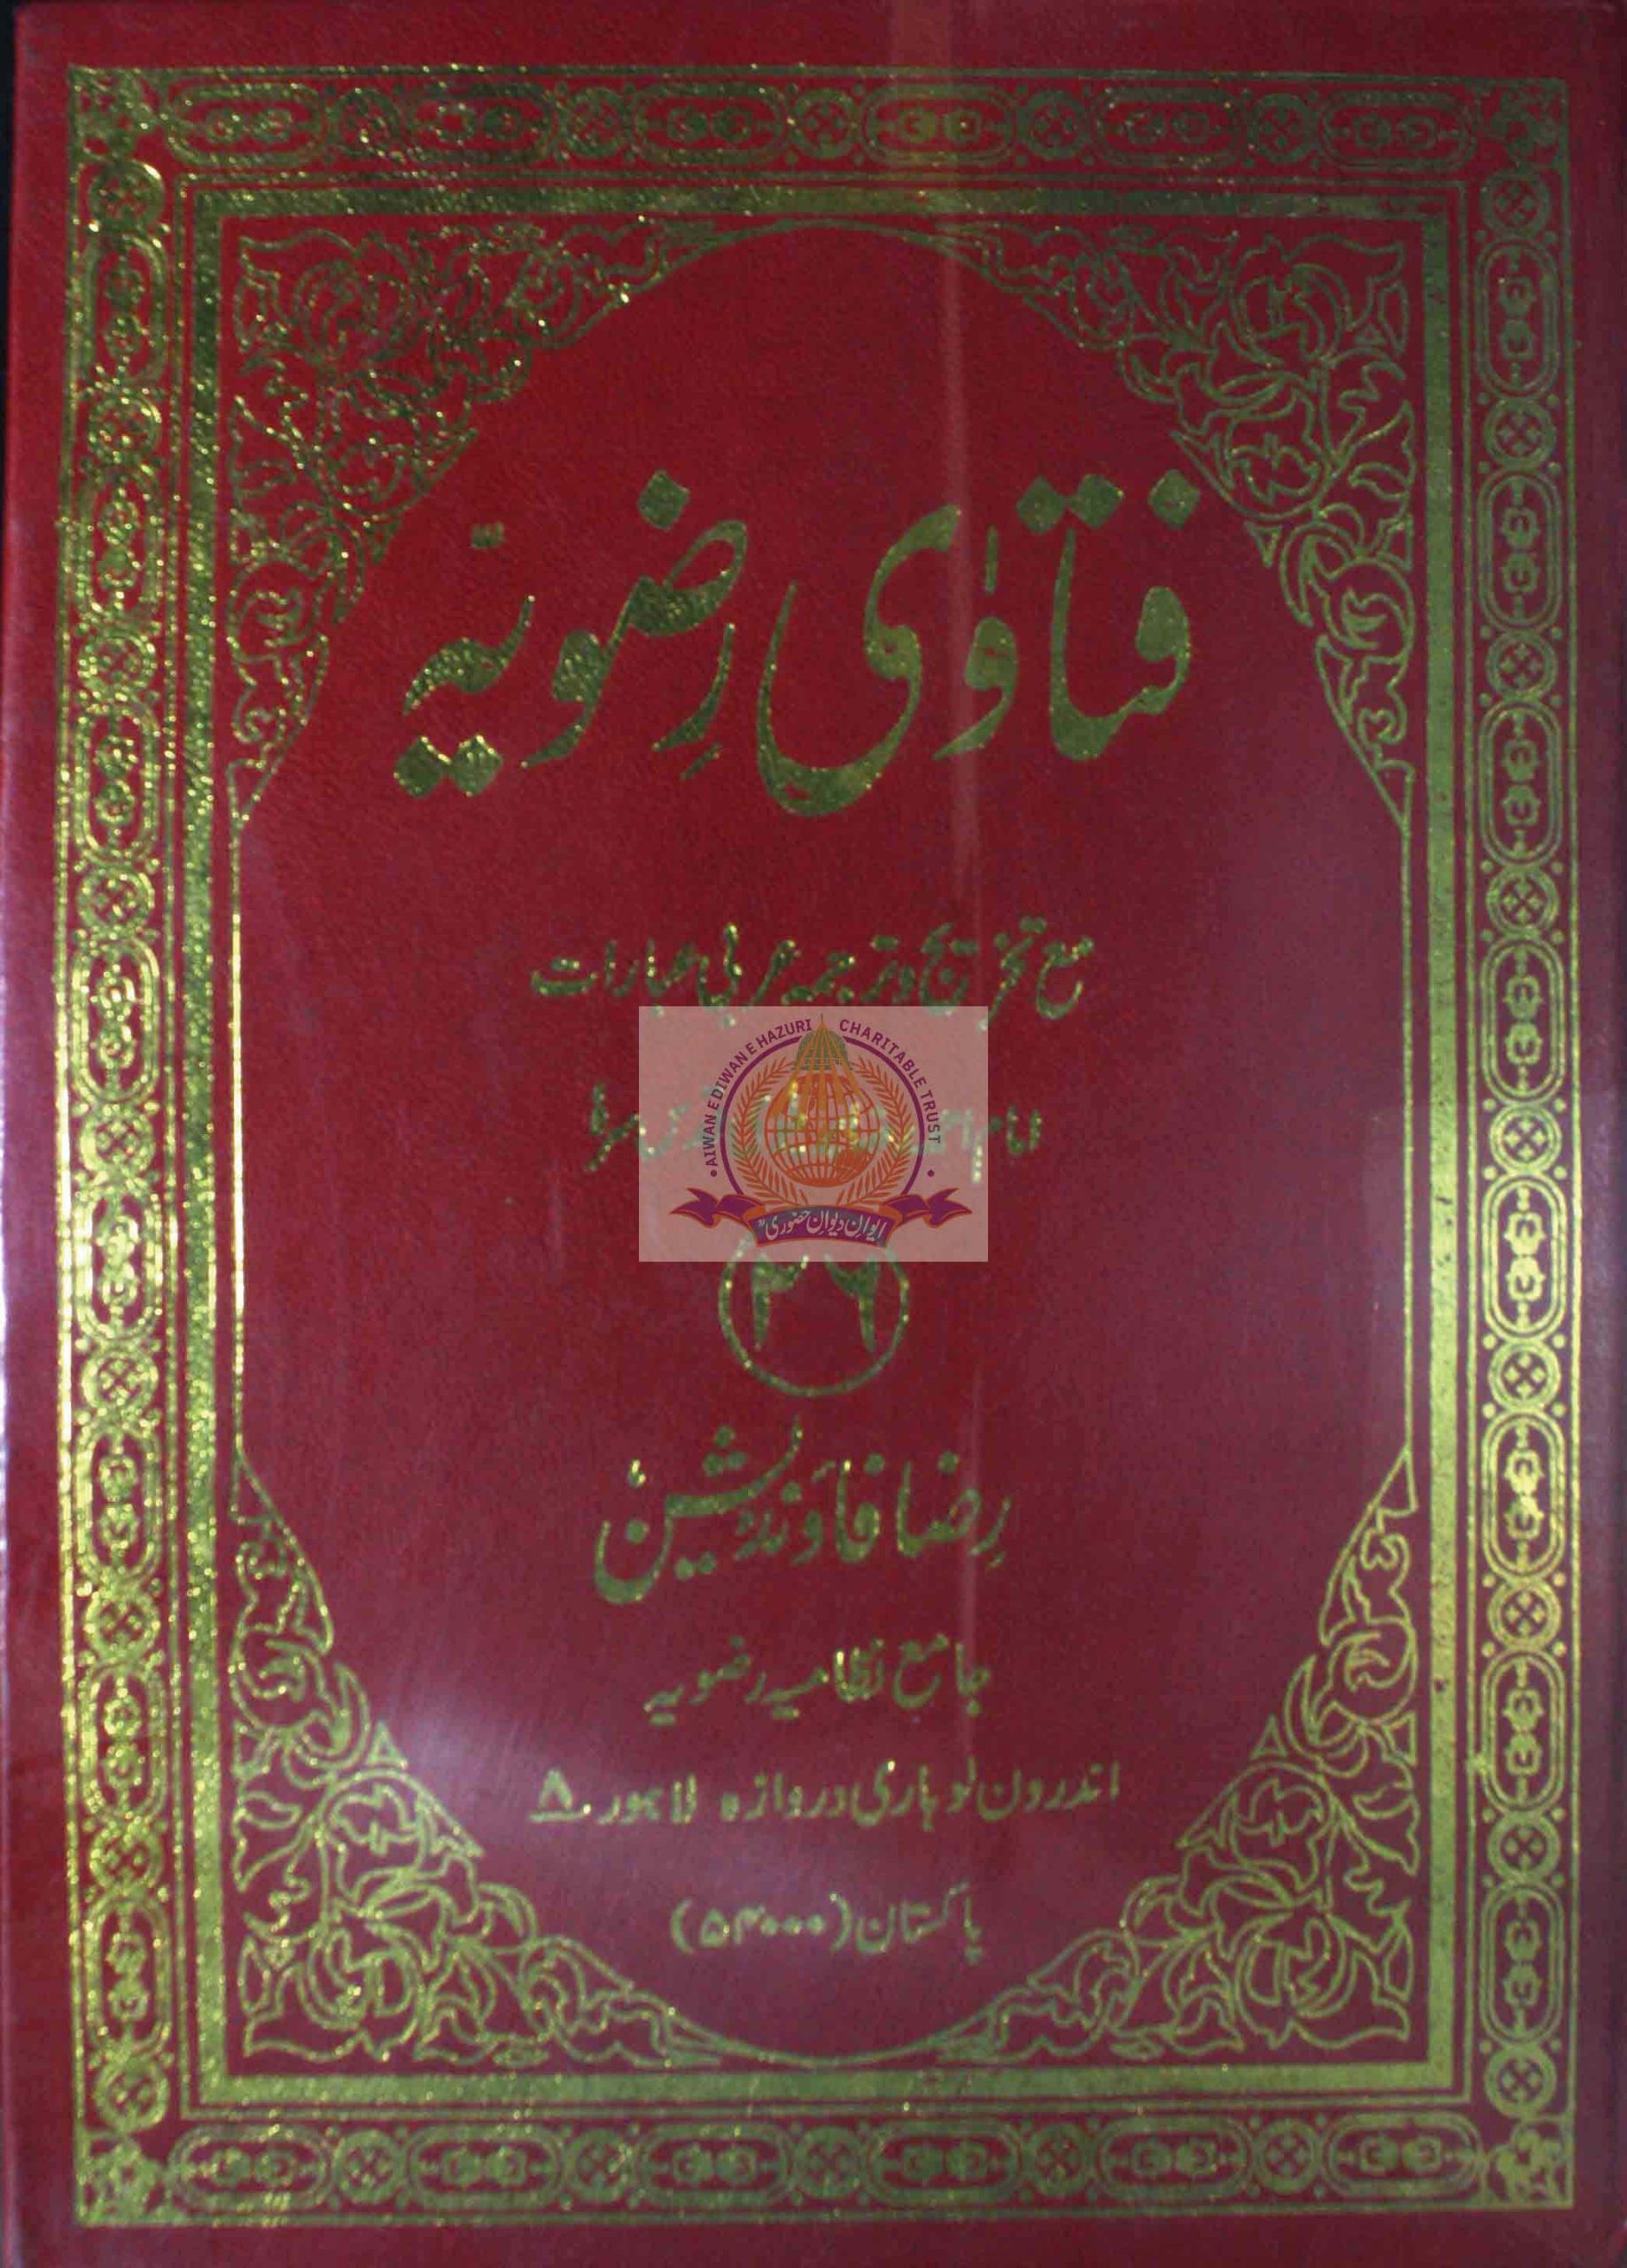 فتاوٰی رِضویّہ
مع تخریج و ترجمہ عربی عبارات
امام
AIWAN E DIWAN E HAZURI CHARITABLE TRUST
ایوانِ دیوانِ حضوری
۲۶
رِضا فاؤنڈیشن
جامع نظامیہ رضویہ
اندرون لوہاری دروازہ لاہور ۸
پاکستان (۵۴۰۰۰)